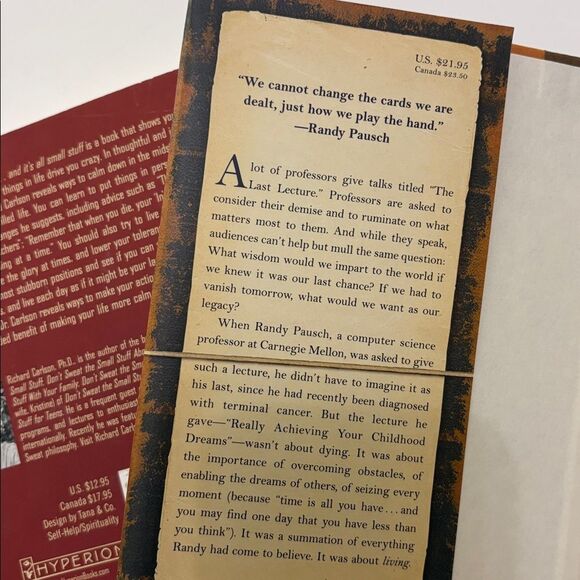 U.S. $21.95
Canada $23.50
“We cannot change the cards we are
dealt, just how we play the hand.”
—Randy Pausch
A lot of professors give talks titled “The
Last Lecture.” Professors are asked to
consider their demise and to ruminate on what
matters most to them. And while they speak,
audiences can’t help but mull the same question:
What wisdom would we impart to the world if
we knew it was our last chance? If we had to
vanish tomorrow, what would we want as our
legacy?
When Randy Pausch, a computer science
professor at Carnegie Mellon, was asked to give
such a lecture, he didn’t have to imagine it as
his last, since he had recently been diagnosed
with terminal cancer. But the lecture he
gave—“Really Achieving Your Childhood
Dreams”—wasn’t about dying. It was about
the importance of overcoming obstacles, of
enabling the dreams of others, of seizing every
moment (because “time is all you have...and
you may find one day that you have less than
you think”). It was a summation of everything
Randy had come to believe. It was about living.
and it's all small stuff is a book that shows you
things in life drive you crazy. In thoughtful and
Carlson reveals ways to calm down in the
life. You can learn to put things in
he suggests, including advice such as
"Remember that when you die, your
at a time." You should also try to live
the glory at times, and lower your
most stubborn positions and see if you can
and live each day as if it might be your
Dr. Carlson reveals ways to make your
benefit of making your life more calm
Richard Carlson, Ph.D., is the author of the
Small Stuff, Don't Sweat the Small Stuff
Stuff With Your Family, Don't Sweat the
wife, Kristine) of Don't Sweat the Small
Stuff for Teens. He is a frequent
programs, and lectures to
internationally. Recently he was
Sweat philosophy. Visit Richard
U.S. $12.95
Canada $17.95
Design by Tana & Co.
Self-Help/Spirituality
HYPERION